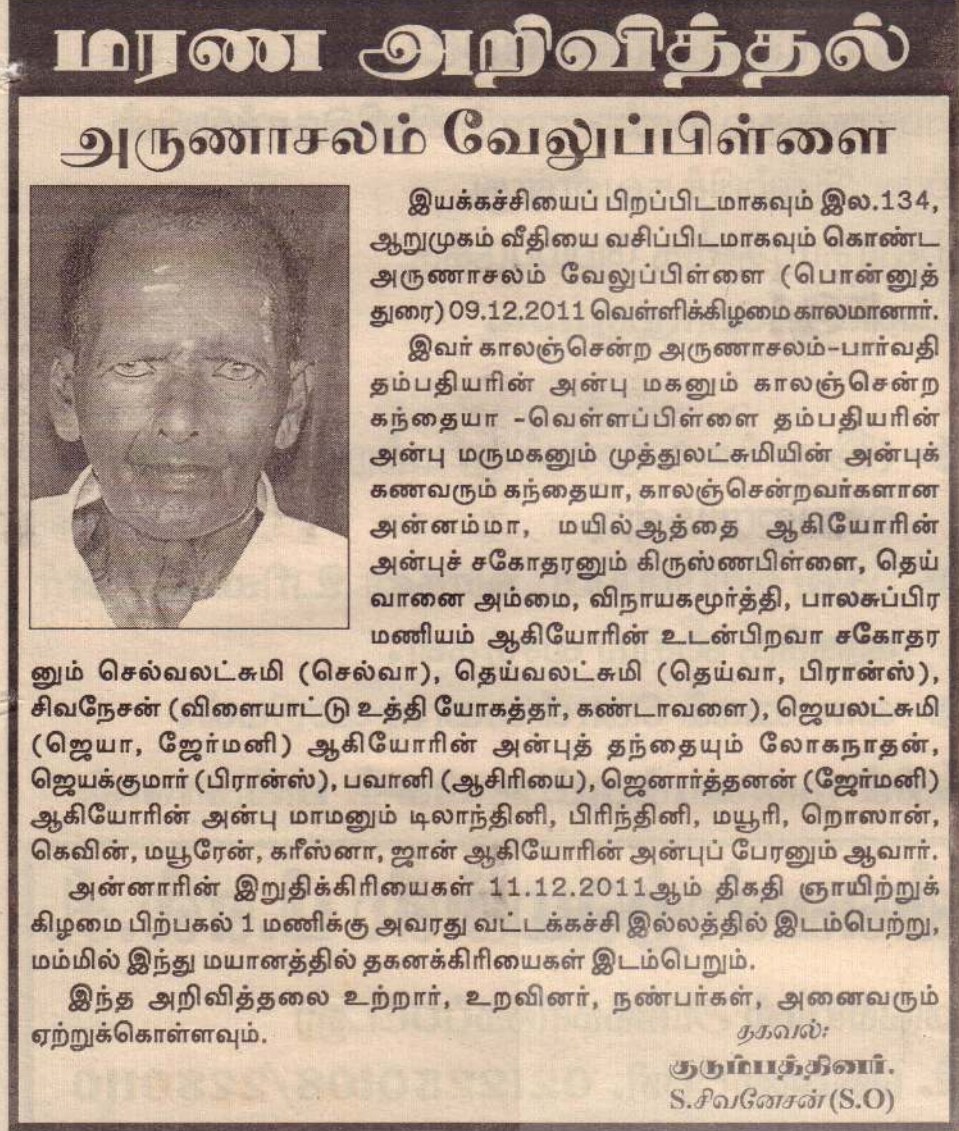 மரண அறிவித்தல்
அருணாசலம் வேலுப்பிள்ளை
இயக்கச்சியைப் பிறப்பிடமாகவும் இல.134,
ஆறுமுகம் வீதியை வசிப்பிடமாகவும் கொண்ட
அருணாசலம் வேலுப்பிள்ளை (பொன்னுத்
துரை) 09.12.2011 வெள்ளிக்கிழமை காலமானார்.
இவர் காலஞ்சென்ற அருணாசலம்-பார்வதி
தம்பதியரின் அன்பு மகனும் காலஞ்சென்ற
கந்தையா -வெள்ளப்பிள்ளை தம்பதியரின்
அன்பு மருமகனும் முத்துலட்சுமியின் அன்புக்
கணவரும் கந்தையா, காலஞ்சென்றவர்களான
அன்னம்மா, மயில்ஆத்தை ஆகியோரின்
அன்புச் சகோதரனும் கிருஸ்ணபிள்ளை, தெய்
வானை அம்மை, விநாயகமூர்த்தி, பாலசுப்பிர
மணியம் ஆகியோரின் உடன்பிறவா சகோதர
னும் செல்வலட்சுமி (செல்வா), தெய்வலட்சுமி (தெய்வா, பிரான்ஸ்),
சிவநேசன் (விளையாட்டு உத்தி யோகத்தர், கண்டாவளை), ஜெயலட்சுமி
(ஜெயா, ஜேர்மனி) ஆகியோரின் அன்புத் தந்தையும் லோகநாதன்,
ஜெயக்குமார் (பிரான்ஸ்), பவானி (ஆசிரியை), ஜெனார்த்தனன் (ஜேர்மனி)
ஆகியோரின் அன்பு மாமனும் டிலாந்தினி, பிரிந்தினி, மயூரி, றொஸான்,
கெவின், மயூரேன், கரீஸ்னா, ஜான் ஆகியோரின் அன்புப் பேரனும் ஆவார்.
அன்னாரின் இறுதிக்கிரியைகள் 11.12.2011ஆம் திகதி ஞாயிற்றுக்
கிழமை பிற்பகல் 1 மணிக்கு அவரது வட்டக்கச்சி இல்லத்தில் இடம்பெற்று,
மம்மில் இந்து மயானத்தில் தகனக்கிரியைகள் இடம்பெறும்.
இந்த அறிவித்தலை உற்றார், உறவினர், நண்பர்கள், அனைவரும்
ஏற்றுக்கொள்ளவும்.
தகவல்:
குடும்பத்தினர்.
S.சிவனேசன் (S.O)